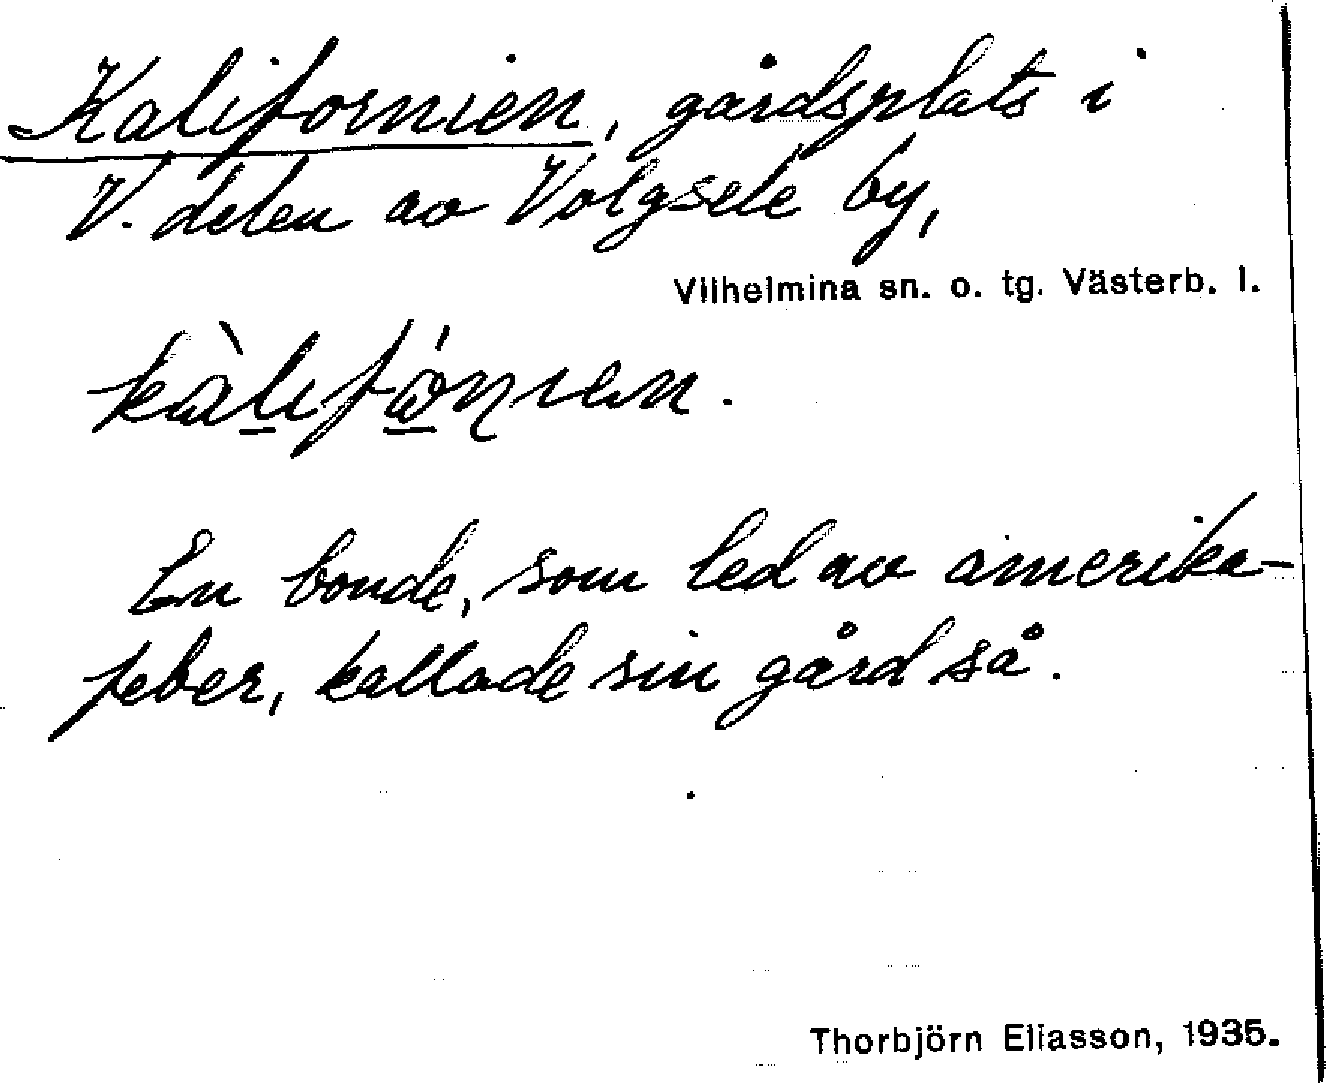 Kalifornien, gårdsplats i
V. delen av Volgsele by,
Vilhelmina sn. o. tg. Västerb. l.
En bonde, som led av amerika-
feber, kallade sin gård så.
Thorbjörn Eliasson, 1935.